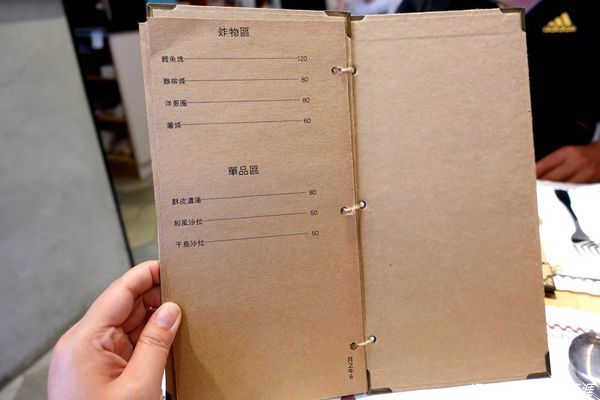 炸物區
鱈魚塊 120
雞柳條 80
洋蔥圈 80
薯條 60
單品區
酥皮濃湯 80
和風沙拉 50
千島沙拉 50
adidas